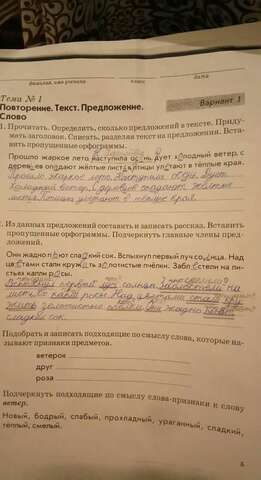 фамилия, имя ученика класс дата
Тема № 1
Повторение. Текст. Предложение.
Слово
Вариант 1
1. Прочитать. Определить, сколько предложений в тексте. Приду-
мать заголовок. Списать, разделяя текст на предложения. Вста-
вить пропущенные орфограммы.
Прошло жаркое лето наступила ос нь дует х лодный ветер, с
дерев ев опадают жёлтые листья птицы улетают в тёплые края.
Прошло жаркое лето. Наступила осень. Дует
холодный ветер. С деревьев опадают жёлтые
листья. Птицы улетают в тёплые края.
2. Из данных предложений составить и записать рассказ. Вставить
пропущенные орфограммы. Подчеркнуть главные члены пред-
ложений.
Они жадно п ют сла кий сок. Вспыхнул первый луч со нца. Над
цв тами стали круж ть з лотистые пчёлки. Забл стели на ли-
стьях капли р сы.
Вспыхнул первый луч солнца. Заблестели на
листьях капли росы. Над цветами стали кру
жить золотистые пчёлки. Они жадно пьют
сладкий сок.
Подобрать и записать подходящие по смыслу слова, которые на-
зывают признаки предметов.
ветерок
друг
роза
Подчеркнуть подходящие по смыслу слова-признаки к слову
ветер.
Новый, бодрый, слабый, прохладный, ураганный, сладкий,
тёплый, смелый.
5